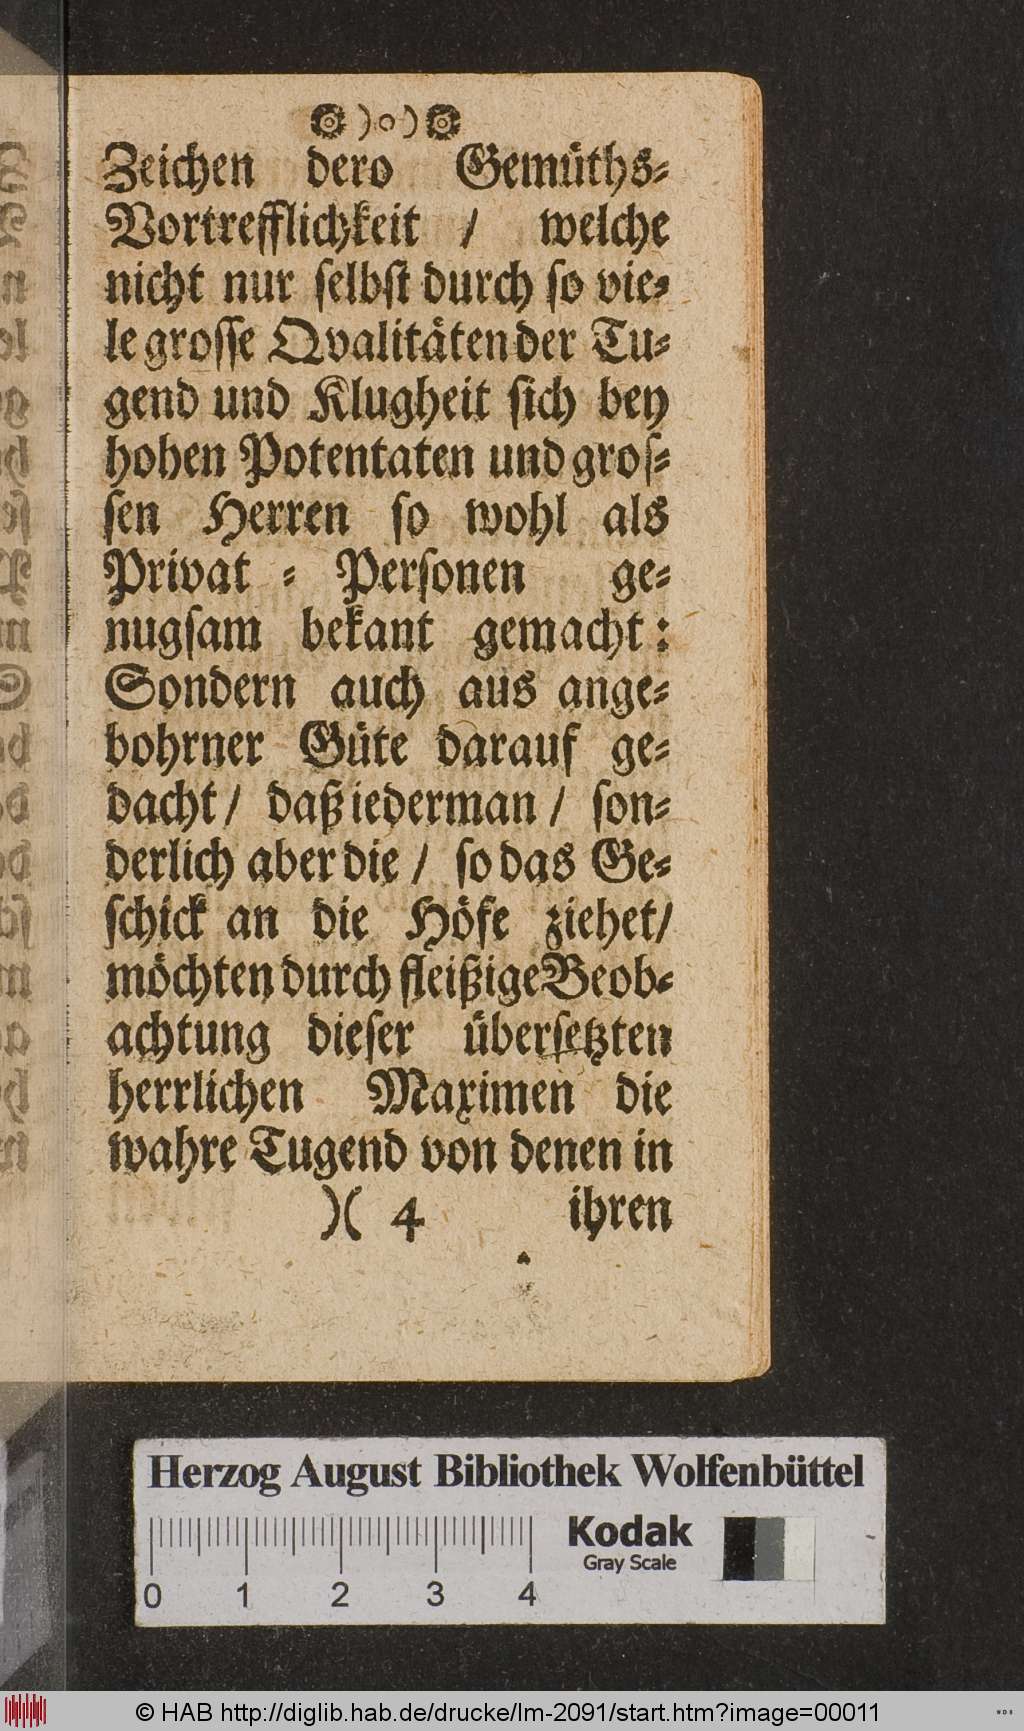 )o)
Zeichen dero Gemüths-
Vortrefflichkeit / welche
nicht nur ſelbſt durch ſo vie-
le groſſe Qvalitäten der Tu-
gend und Klugheit ſich bey
hohen Potentaten und groſ-
ſen Herren ſo wohl als
Privat - Perſonen ge-
nugſam bekant gemacht:
Sondern auch aus ange-
bohrner Güte darauf ge-
dacht / daß iederman / ſon-
derlich aber die / ſo das Ge-
ſchick an die Höfe ziehet/
möchten durch fleißige Beob-
achtung dieſer überſetzten
herrlichen Maximen die
wahre Tugend von denen in
)( 4 ihren
Herzog August Bibliothek Wolfenbüttel
Kodak
Gray Scale
0 1 2 3 4
© HAB http://diglib.hab.de/drucke/lm-2091/start.htm?image=00011